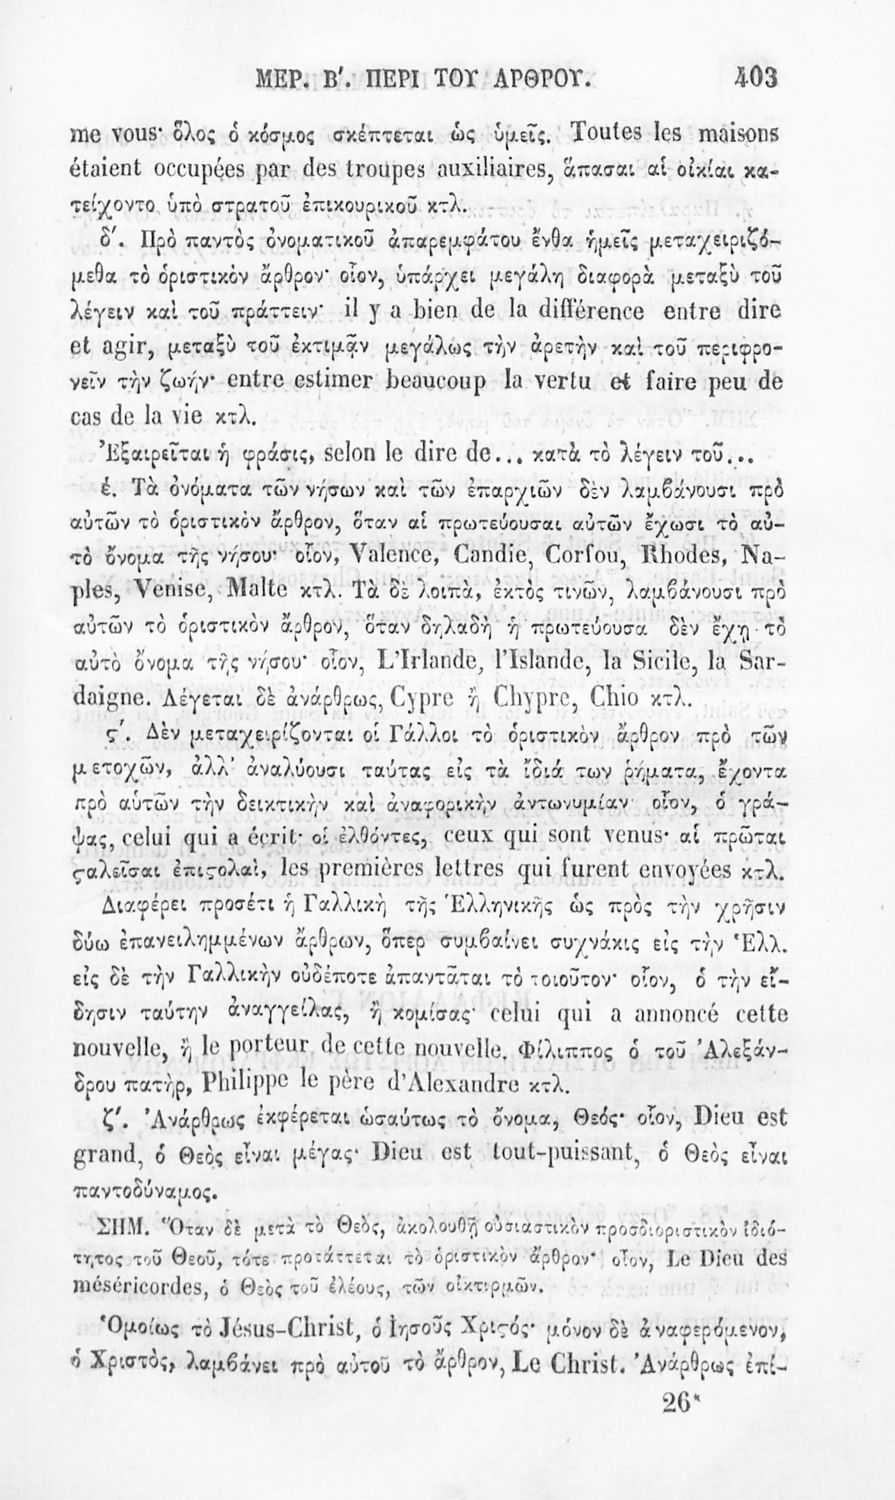 ΜΕΡ. Β′. ΠΕΡΙ ΤΟΥ ΑΡΘΡΟΥ. 403
me vous· ὅλος ὁ κόσμος σκέπτεται ὡς ὑμεῖς. Toutes les maisons
étaient occupées par des troupes auxiliaires, ἅπασαι αἱ οἰκίαι κα-
τείχοντο ὑπὸ στρατοῦ ἐπικουρικοῦ κτλ.
δ′. Πρὸ παντὸς ὀνοματικοῦ ἀπαρεμφάτου ἔνθα ἡμεῖς μεταχειριζό-
μεθα τὸ ὁριστικὸν ἄρθρον· οἷον, ὑπάρχει μεγάλη διαφορὰ μεταξὺ τοῦ
λέγειν καὶ τοῦ πράττειν· il y a bien de la différence entre dire
et agir, μεταξὺ τοῦ ἐκτιμᾷν μεγάλως τὴν ἀρετὴν καὶ τοῦ περιφρο-
νεῖν τὴν ζωήν· entre estimer beaucoup la vertu et faire peu de
cas de la vie κτλ.
Ἐξαιρεῖται ἡ φράσις, selon le dire de... κατὰ τὸ λέγειν τοῦ...
έ. Τὰ ὀνόματα τῶν νήσων καὶ τῶν ἐπαρχιῶν δὲν λαμβάνουσι πρὸ
αὐτῶν τὸ ὁριστικὸν ἄρθρον, ὅταν αἱ πρωτεύουσαι αὐτῶν ἔχωσι τὸ αὐ-
τὸ ὄνομα τῆς νήσου· οἷον, Valence, Candie, Corfou, Rhodes, Na-
ples, Venise, Malte κτλ. Τὰ δὲ λοιπὰ, ἐκτὸς τινῶν, λαμβάνουσι πρὸ
αὐτῶν τὸ ὁριστικὸν ἄρθρον, ὅταν δηλαδὴ ἡ πρωτεύουσα δὲν ἔχῃ τὸ
αὐτὸ ὄνομα τῆς νήσου· οἷον, L'Irlande, l'Islande, la Sicile, la Sar-
daigne. Λέγεται δὲ ἀνάρθρως, Cypre ἢ Chypre, Chio κτλ.
ς′. Δὲν μεταχειρίζονται οἱ Γάλλοι τὸ ὁριστικὸν ἄρθρον πρὸ τῶν
μετοχῶν, ἀλλ' ἀναλύουσι ταύτας εἰς τὰ ἴδιά των ῥήματα, ἔχοντα
πρὸ αὑτῶν τὴν δεικτικὴν καὶ ἀναφορικὴν ἀντωνυμίαν· οἷον, ὁ γρά-
ψας, celui qui a écrit· οἱ ἐλθόντες, ceux qui sont venus· αἱ πρῶται
ϛαλεῖσαι ἐπιϛολαὶ, les premières lettres qui furent envoyées κτλ.
Διαφέρει προσέτι ἡ Γαλλικὴ τῆς Ἑλληνικῆς ὡς πρὸς τὴν χρῆσιν
δύω ἐπανειλημμένων ἄρθρων, ὅπερ συμβαίνει συχνάκις εἰς τὴν Ἑλλ.
εἰς δὲ τὴν Γαλλικὴν οὐδέποτε ἀπαντᾶται τὸ τοιοῦτον· οἷον, ὁ τὴν εἴ-
δησιν ταύτην ἀναγγείλας, ἢ κομίσας· celui qui a annoncé cette
nouvelle, ἢ le porteur de cette nouvelle. Φίλιππος ὁ τοῦ Ἀλεξάν-
δρου πατὴρ, Philippe le père d'Alexandre κτλ.
ζ′. Ἀνάρθρως ἐκφέρεται ὡσαύτως τὸ ὄνομα, Θεός· οἷον, Dieu est
grand, ὁ Θεὸς εἶναι μέγας· Dieu est tout-puissant, ὁ Θεὸς εἶναι
παντοδύναμος.
ΣΗΜ. Ὅταν δὲ μετὰ τὸ Θεὸς, ἀκολουθῇ οὐσιαστικὸν προσδιοριστικὸν ἰδιό-
τητος τοῦ Θεοῦ, τότε προτάττεται τὸ ὁριστικὸν ἄρθρον· οἷον, Le Dieu des
méséricordes, ὁ Θεὸς τοῦ ἐλέους, τῶν οἰκτιρμῶν.
Ὁμοίως τὸ Jésus-Christ, ὁ Ἰησοῦς Χριϛός· μόνον δὲ ἀναφερόμενον,
ὁ Χριστὸς, λαμβάνει πρὸ αὐτοῦ τὸ ἄρθρον, Le Christ. Ἀνάρθρως ἐπί-
26*